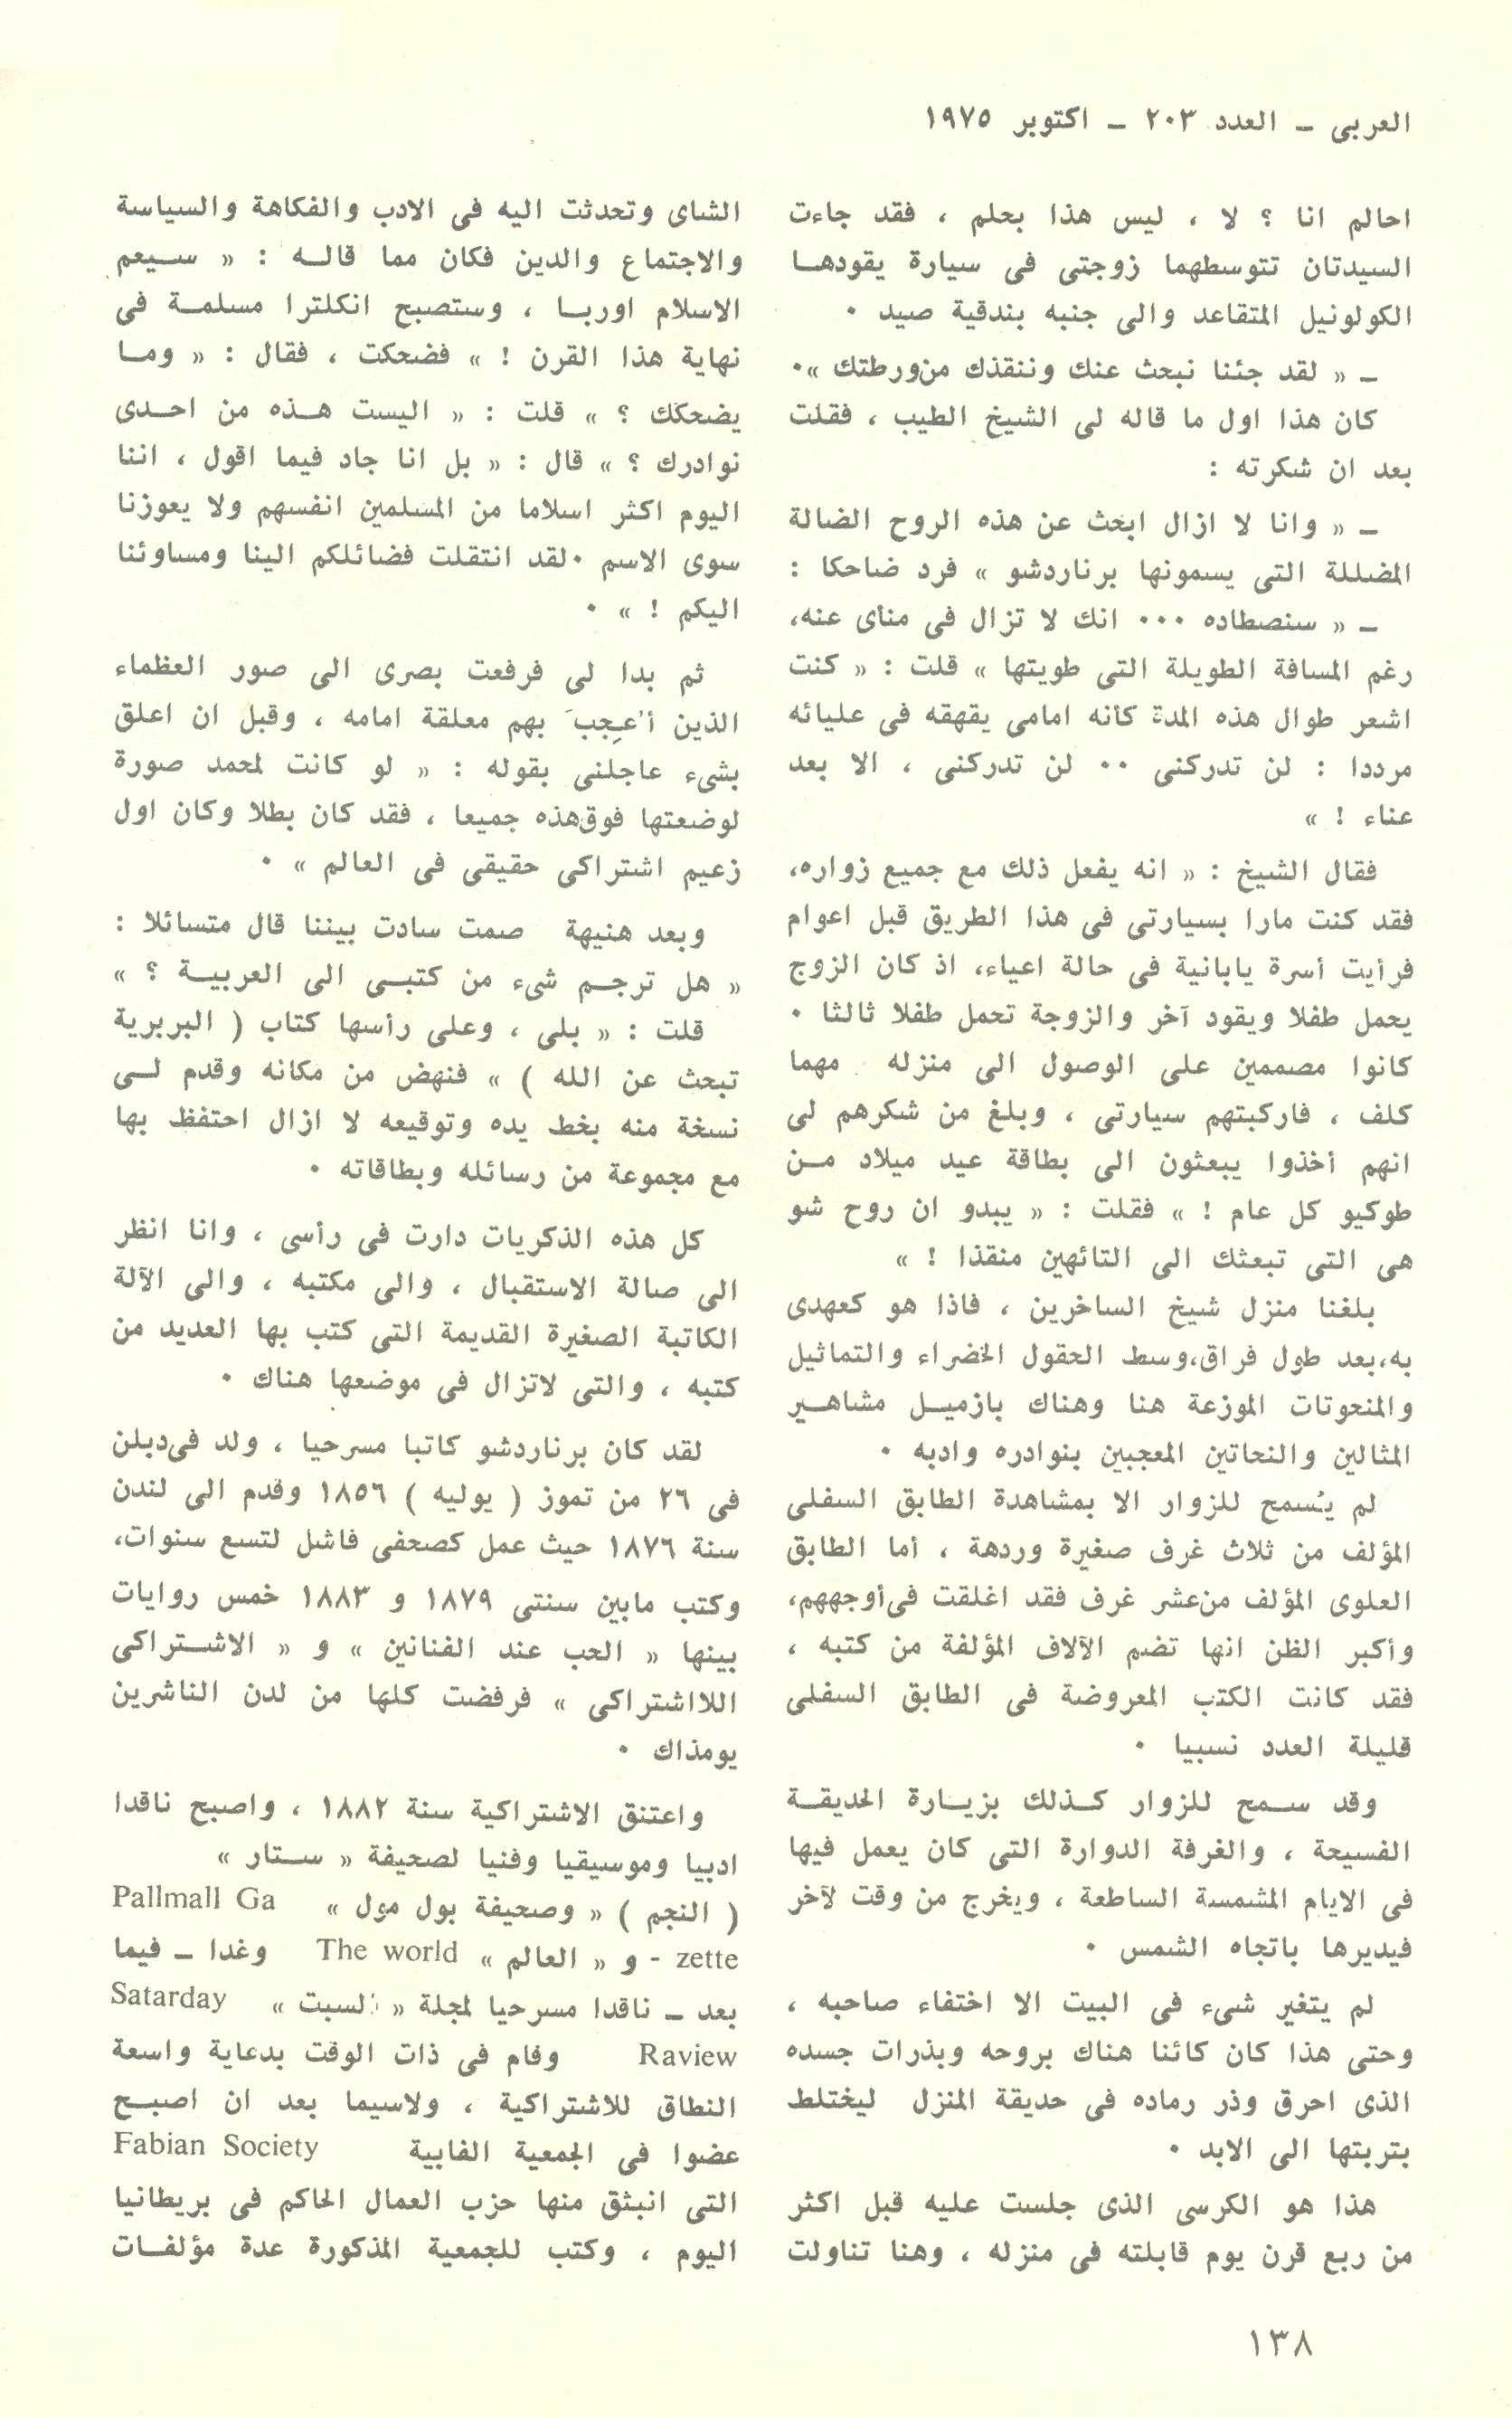 العربى – العدد ٢٠٣ – اكتوبر ١٩٧٥
احالم انا ؟ لا ، ليس هذا بحلم ، فقد جاءت
السيدتان تتوسطهما زوجتى فى سيارة يقودهـا
الكولونيل المتقاعد والى جنبه بندقية صيد ٠
– « لقد جئنا نبحث عنك وننقذك من ورطتك »٠
كان هذا اول ما قاله لى الشيخ الطيب ، فقلت
بعد ان شكرته :
– « وانا لا ازال ابحث عن هذه الروح الضالة
المضللة التى يسمونها برناردشو » فرد ضاحكا :
– « سنصطاده ٠٠٠ انك لا تزال فى منأى عنه،
رغم المسافة الطويلة التى طويتها » قلت : « كنت
اشعر طوال هذه المدة كأنه امامى يقهقه فى عليائه
مرددا : لن تدركنى ٠٠ لن تدركنى ، الا بعد
عناء ! »
فقال الشيخ : « انه يفعل ذلك مع جميع زواره،
فقد كنت مارا بسيارتى فى هذا الطريق قبل اعوام
فرأيت أسرة يابانية فى حالة اعياء، اذ كان الزوج
يحمل طفلا ويقود آخر والزوجة تحمل طفلا ثالثا ٠
كانوا مصممين على الوصول الى منزله مهما
كلف ، فاركبتهم سيارتى ، وبلغ من شكرهم لى
انهم أخذوا يبعثون الى بطاقة عيد ميلاد مـن
طوكيو كل عام ! » فقلت : « يبدو ان روح شو
هى التى تبعثك الى التائهين منقذا ! »
بلغنا منزل شيخ الساخرين ، فاذا هو كعهدى
به،بعد طول فراق،وسط الحقول الخضراء والتماثيل
والمنحوتات الموزعة هنا وهناك بازميـل مشاهـير
المثالين والنحاتين المعجبين بنوادره وادبه ٠
لم يُسمح للزوار الا بمشاهدة الطابق السفلى
المؤلف من ثلاث غرف صغيرة وردهة ، أما الطابق
العلوى المؤلف من عشر غرف فقد اغلقت فى أوجههم،
وأكبر الظن انها تضم الآلاف المؤلفة من كتبه ،
فقد كانت الكتب المعروضة فى الطابق السفلى
قليلة العدد نسبيا ٠
وقد سـمح للزوار كـذلك بزيـارة الحديقـة
الفسيحة ، والغرفة الدوارة التى كان يعمل فيها
فى الايام المشمسة الساطعة ، ويخرج من وقت لآخر
فيديرها باتجاه الشمس ٠
لم يتغير شىء فى البيت الا اختفاء صاحبه ،
وحتى هذا كان كائنا هناك بروحه وبذرات جسده
الذى احرق وذر رماده فى حديقة المنزل ليختلط
بتربتها الى الابد ٠
هذا هو الكرسى الذى جلست عليه قبل اكثر
من ربع قرن يوم قابلته فى منزله ، وهنا تناولت
الشاى وتحدثت اليه فى الادب والفكاهة والسياسة
والاجتماع والدين فكان مما قالـه : « سـيعم
الاسلام اوربـا ، وستصبح انكلترا مسلمـة فى
نهاية هذا القرن ! » فضحكت ، فقال : « ومـا
يضحكك ؟ » قلت : « اليست هـذه من احـدى
نوادرك ؟ » قال : « بل انا جاد فيما اقول ، اننا
اليوم اكثر اسلاما من المسلمين انفسهم ولا يعوزنا
سوى الاسم ٠لقد انتقلت فضائلكم الينا ومساوئنا
اليكم ! » ٠
ثم بدا لى فرفعت بصرى الى صور العظماء
الذين أُعجِبَ بهم معلقة امامه ، وقبل ان اعلق
بشىء عاجلنى بقوله : « لو كانت لمحمد صورة
لوضعتها فوق هذه جميعا ، فقد كان بطلا وكان اول
زعيم اشتراكى حقيقى فى العالم » ٠
وبعد هنيهة صمت سادت بيننا قال متسائلا :
« هل ترجـم شىء من كتبـى الى العربيـة ؟ »
قلت : « بلى ، وعلى رأسها كتاب ( البربرية
تبحث عن الله ) » فنهض من مكانه وقدم لـى
نسخة منه بخط يده وتوقيعه لا ازال احتفظ بها
مع مجموعة من رسائله وبطاقاته ٠
كل هذه الذكريات دارت فى رأسى ، وانا انظر
الى صالة الاستقبال ، والى مكتبه ، والى الآلة
الكاتبة الصغيرة القديمة التى كتب بها العديد من
كتبه ، والتى لاتزال فى موضعها هناك ٠
لقد كان برناردشو كاتبا مسرحيا ، ولد فى دبلن
فى ٢٦ من تموز ( يوليه ) ١٨٥٦ وقدم الى لندن
سنة ١٨٧٦ حيث عمل كصحفى فاشل لتسع سنوات،
وكتب مابين سنتى ١٨٧٩ و ١٨٨٣ خمس روايات
بينها « الحب عند الفنانين » و « الاشـتراكى
اللااشتراكى » فرفضت كلها من لدن الناشرين
يومذاك ٠
واعتنق الاشتراكية سنة ١٨٨٢ ، واصبح ناقدا
ادبيا وموسيقيا وفنيا لصحيفة « سـتار »
( النجم ) « وصحيفة بول مول » Pallmall Ga
zette - و « العالم » The world وغدا – فيما
بعد – ناقدا مسرحيا لمجلة « السبت » Satarday
Raview وفام فى ذات الوقت بدعاية واسعة
النطاق للاشتراكية ، ولاسيما بعد ان اصبـح
عضوا فى الجمعية الفابية Fabian Society
التى انبثق منها حزب العمال الحاكم فى بريطانيا
اليوم ، وكتب للجمعية المذكورة عدة مؤلفـات
١٣٨